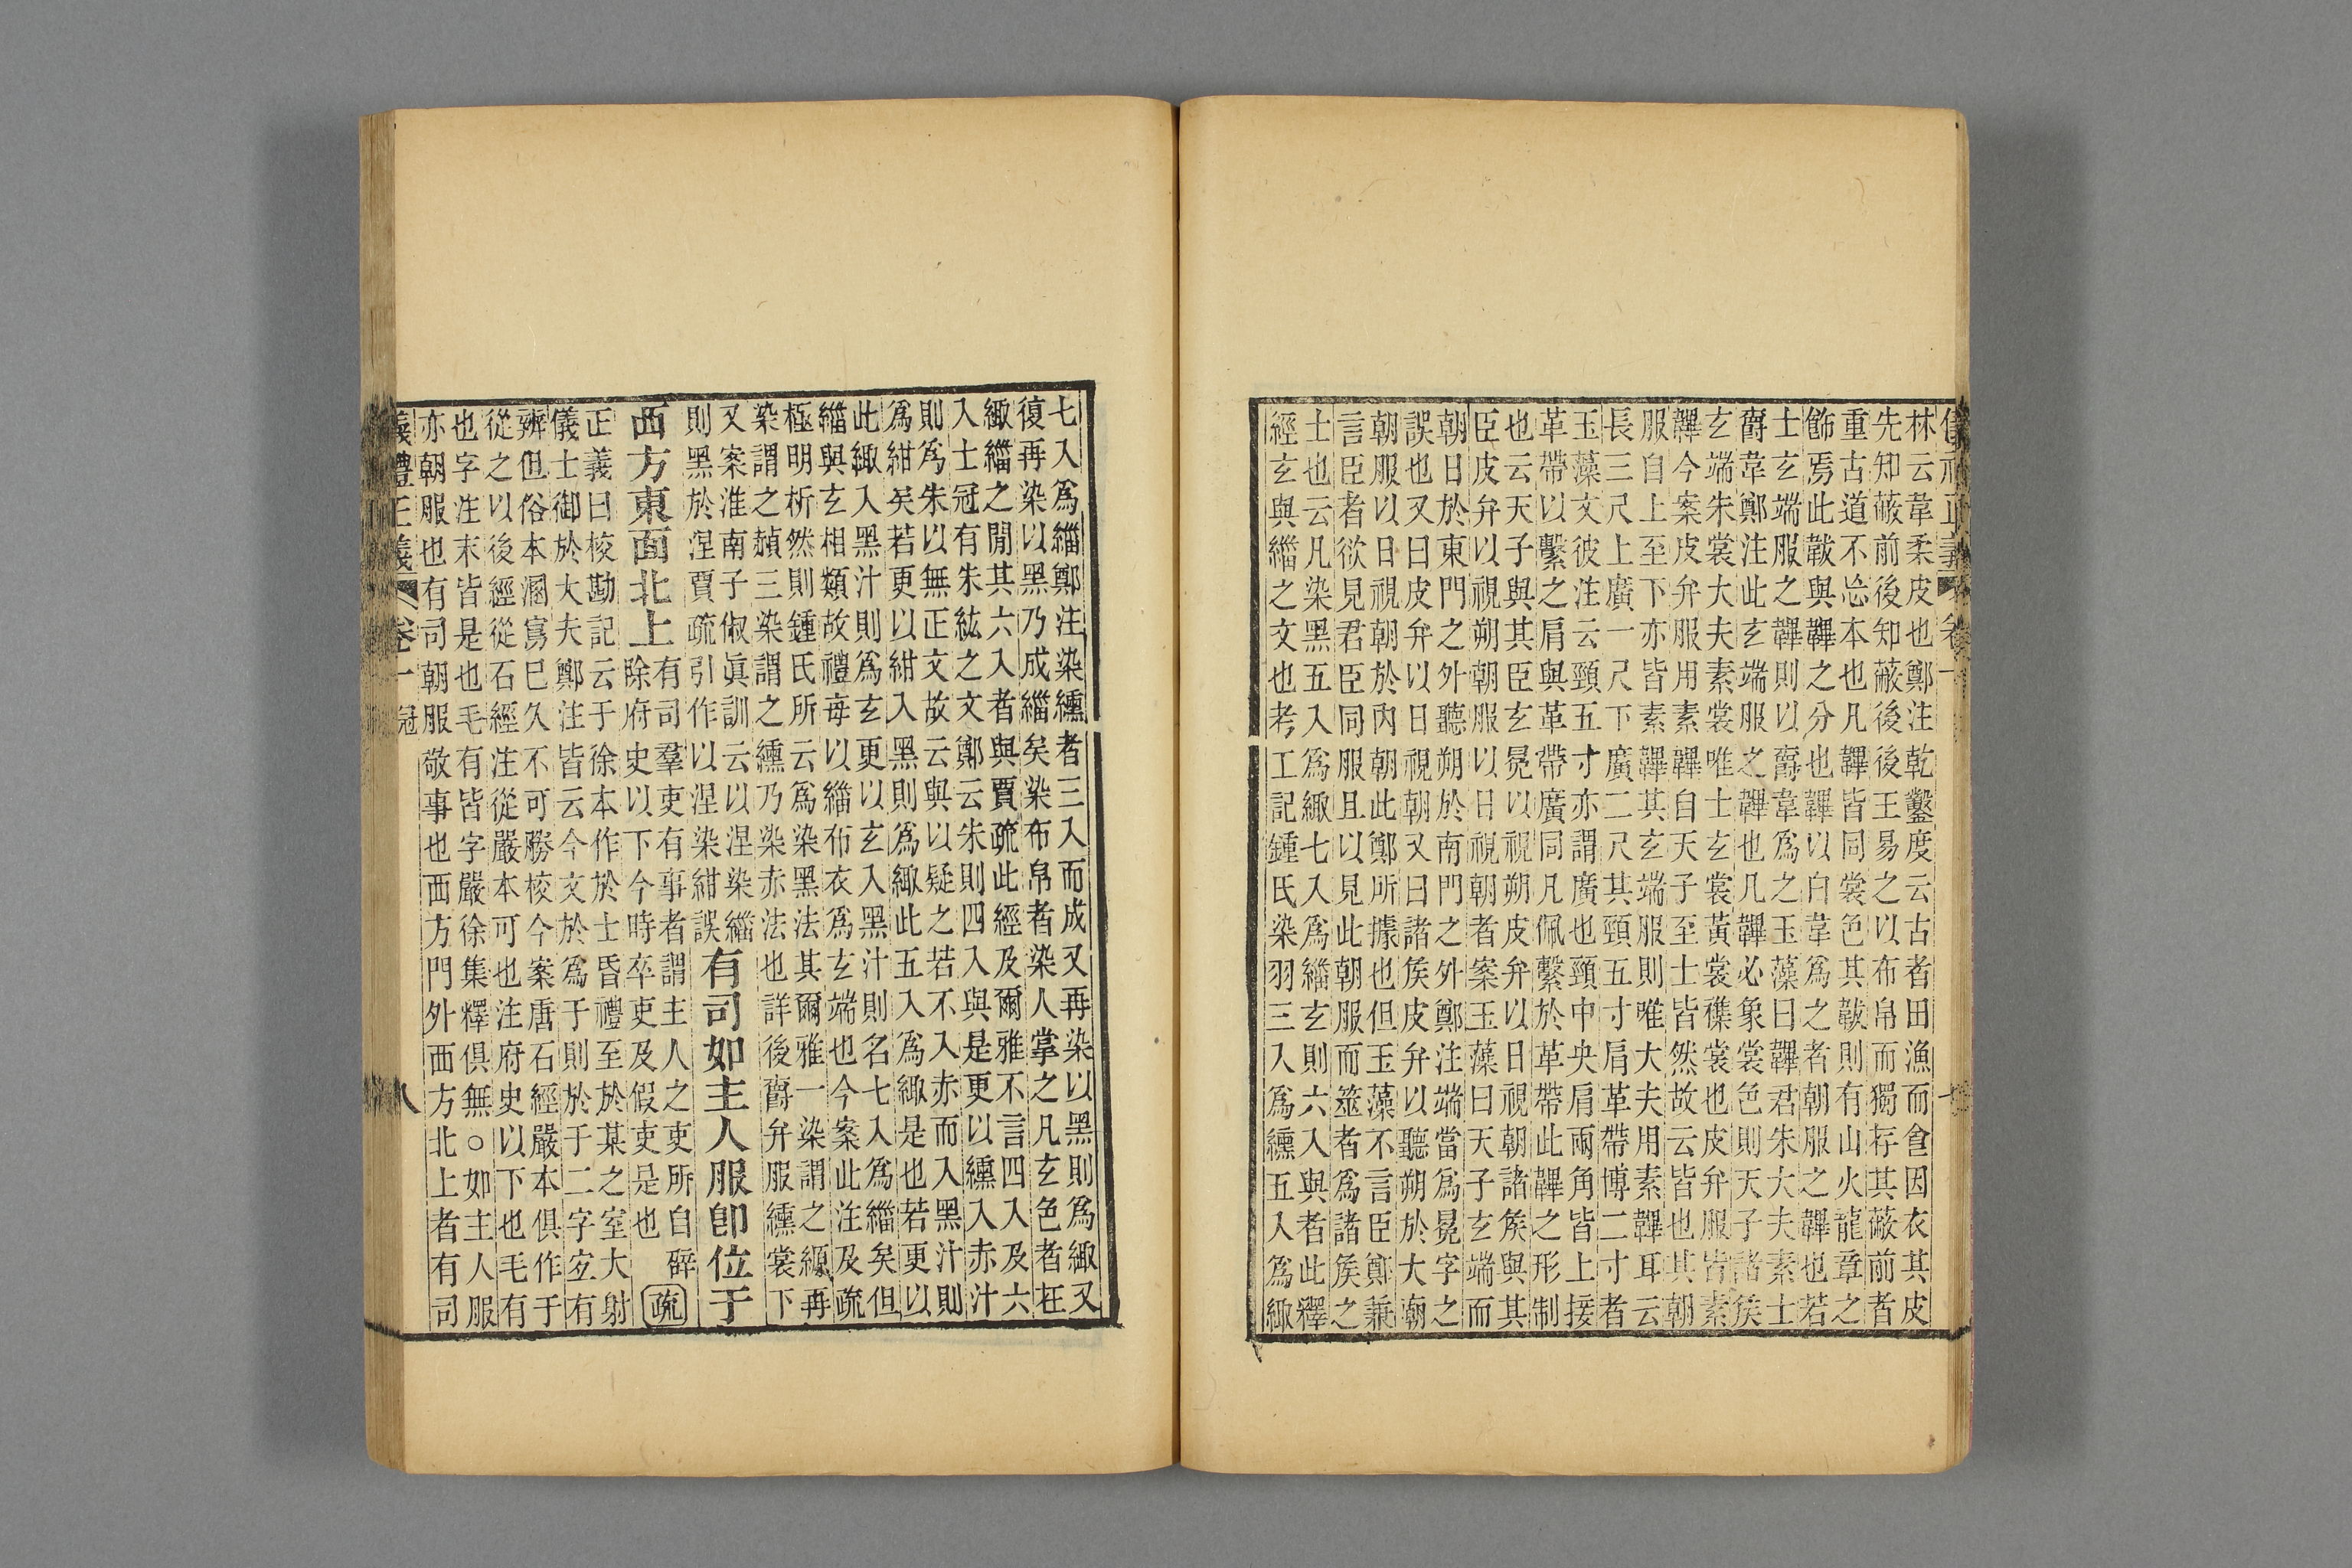 林云韋柔皮也鄭注乾鑿度云古者田漁而食因衣其皮
先知蔽前後知蔽後後王易之以布帛而獨存其蔽前者
重古道不忘本也凡韠皆同裳色其韍則有山火龍章之
飾焉此韍與韠之分也韠以白韋爲之者朝服之韠也若
士玄端服之韠則以爵韋爲之玉藻曰韠君朱大夫素士
爵韋鄭注此玄端服之韠也凡韠必象裳色則天子諸侯
玄端朱裳大夫素裳唯士玄裳黃裳襍裳也皮弁服皆素
韠今案皮弁服用素韠自天子至士皆然故云皆也其朝
服自上至下亦皆素韠其玄端服則唯大夫用素韠耳云
長三尺上廣一尺下廣二尺其頸五寸肩革帶博二寸者
玉藻文彼注云頸五寸亦謂廣也頸中央肩兩角皆上接
革帶以繫之肩與革帶廣同凡佩繫於革帶此韠之形制
也云天子與其臣玄冕以視朔皮弁以日視朝諸侯與其
臣皮弁以視朔朝服以日視朝者案玉藻曰天子玄端而
朝日於東門之外聽朔於南門之外鄭注端當爲冕字之
誤也又曰皮弁以日視朝又曰諸侯皮弁以聽朔於大廟
朝服以日視朝於內朝此鄭所據也但玉藻不言臣鄭兼
言臣者欲見君臣同服且以見此朝服而筮者爲諸侯之
士也云凡染黑五入爲緅七入爲緇玄則六入與者此釋
經玄與緇之文也考工記鍾氏染羽三入爲纁五入爲緅
七入爲緇鄭注染纁者三入而成又再染以黑則爲緅又
復再染以黑乃成緇矣染布帛者染人掌之凡玄色者在
緅緇之閒其六入者與賈疏此經及爾雅不言四入及六
入士冠有朱紘之文鄭云朱則四入與是更以纁入赤汁
則爲朱以無正文故云與以疑之若不入赤而入黑汁則
爲紺矣若更以紺入黑則爲緅此五入爲緅是也若更以
此緅入黑汁則爲玄更以玄入黑汁則名七入爲緇矣但
緇與玄相類故禮每以緇布衣爲玄端也今案此注及疏
極明析然則鍾氏所云爲染黑法其爾雅一染謂之縓再
染謂之赬三染謂之纁乃染赤法也詳後爵弁服纁裳下
又案淮南子俶眞訓云以涅染緇
則黑於涅賈疏引作以涅染紺誤
有司如主人服卽位于
西方東面北上
有司羣吏有事者謂主人之吏所自辟
除府史以下今時卒吏及假吏是也
疏
正義曰校勘記云于徐本作於士昏禮至於某之室大射
儀士御於大夫鄭注皆云今文於爲于則於于二字宐有
辨但俗本溷寫巳久不可勝校今案唐石經嚴本俱作于
從之以後經從石經注從嚴本可也注府史以下也毛有
也字注末皆是也毛有皆字嚴徐集釋俱無○如主人服
亦朝服也有司朝服敬事也西方門外西方北上者有司
儀禮正義 卷一 冠 八